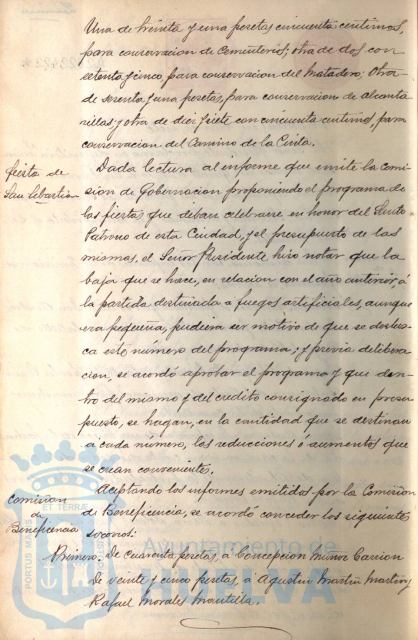 Una de treinta y una pesetas cincuenta centimos,
para conservacion de Cementerios; otra de dos con
setenta y cinco, para conservacion del Matadero; Otra
de sesenta y una pesetas, para conservacion de alcanta
rillas; y otra de diez y siete con cincuenta centimos, para
conservacion del Camino de la Cinta.
fiesta de
San Sebastian
Dada lectura al informe que emite la Comi
sion de Gobernacion proponiendo el programa de
las fiestas que deban celebrarse en honor del Santo
Patrono de esta Ciudad, y el presupuesto de las
mismas, el Señor Presidente hizo notar que la
baja que se hace, en relacion con el año anterior, á
la partida destinada a fuegos artificiales, aunque
era pequeña, pudiera ser motivo de que se desluz
ca este número del programa; y previa delibera
cion, se acordó aprobar el programa y que den
tro del mismo y del credito consignado en presu
puesto, se hagan, en la cantidad que se destinan
a cada número, las reducciones ó aumentos que
se crean convenientes.
Comision
de
Beneficencia
Aceptando los informes emitidos por la Comision
de Beneficencia, se acordó conceder los siguientes
socorros:
Primero: De cuarenta pesetas, a Concepcion Muñoz Carrion
De veinte y cinco pesetas, a Agustin Martin Martin y
Rafael Morales Montilla.
PORTUS MARIS
ET TERRAE
Ayuntamiento de
HUELVA